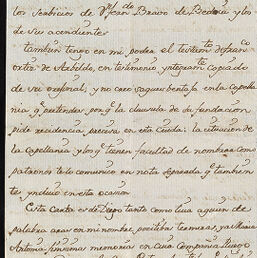 los Servicios de Dn Juan Bravo de Bedoia y los
de sus acendientes
tambien tengo en mi poder el testamto de franco
ortiz de Axbildo, en testimonio yntegram.te copiado
de su original; y no creo saques en la Capella
nia q.e pretendes por q.e la clausula de su fundacion
pide recidencia precisa en esta Ciuda: la cituacion de
la Capellania y los q.e tienen facultad de nombrar como
patronos te lo comunico en nota separada q.e tambien
te yncluio en esta ocasion
Esta Carta es de Diego tanto como tua a quien de
palabra aras en mi nombre, y a Maria
Antonia finissimas memorias en cuia Compañia ruego